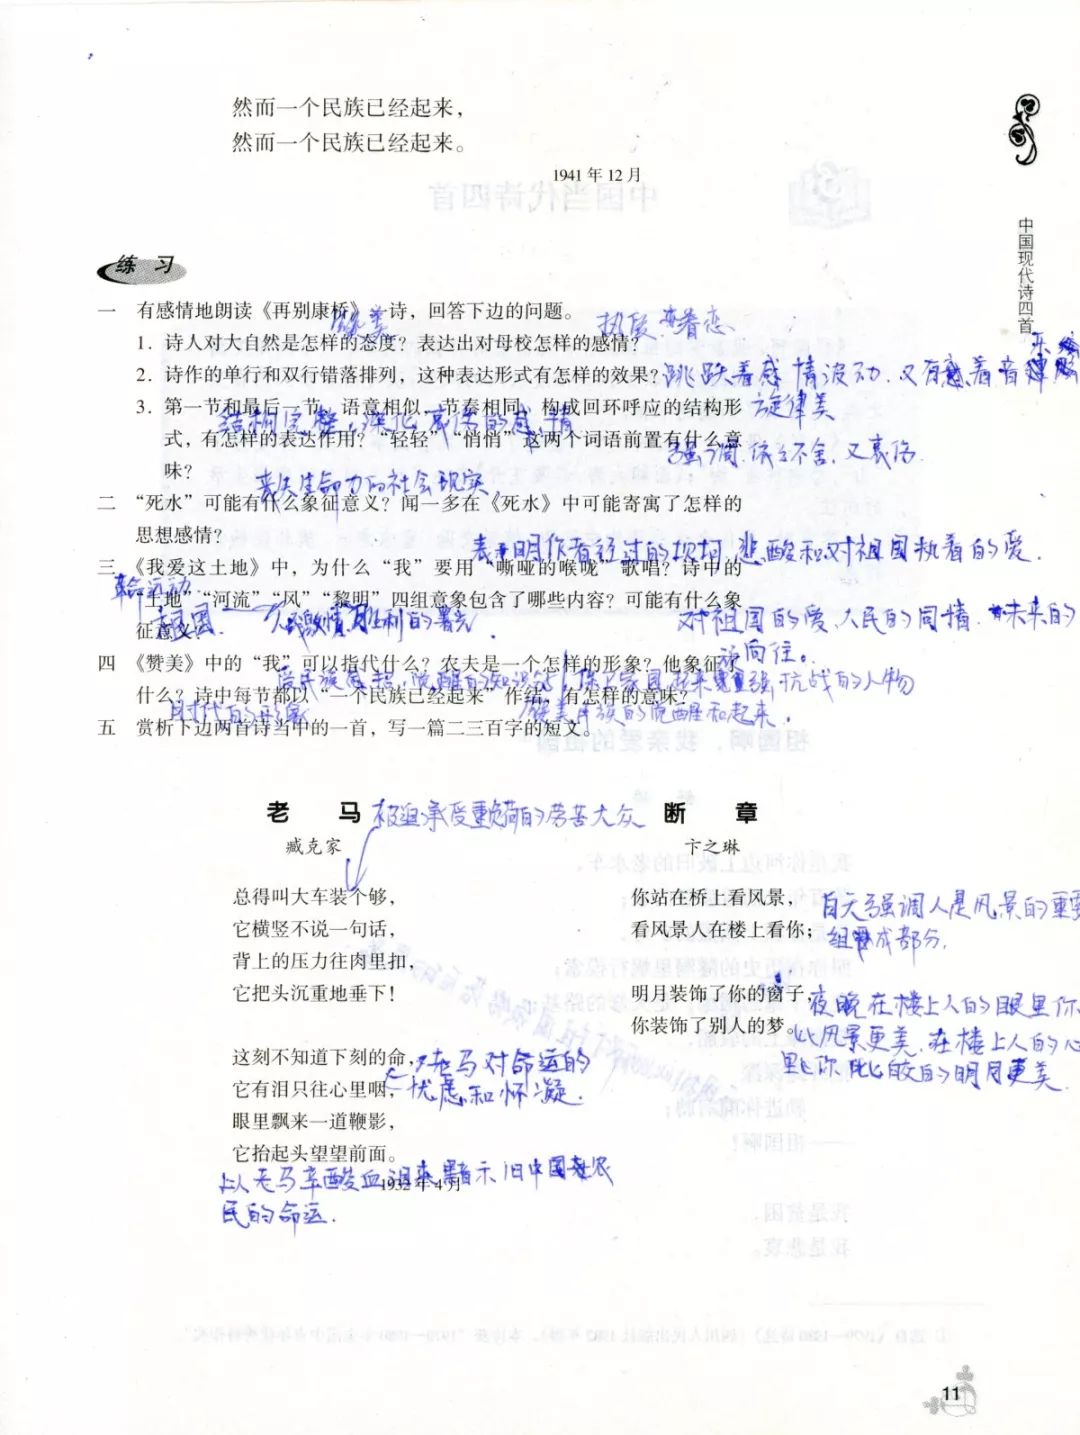 然而一个民族已经起来，
然而一个民族已经起来。
1941年12月
中国现代诗四首
练 习
一 有感情地朗读《再别康桥》一诗，回答下边的问题。
赞美
执着 眷恋
1. 诗人对大自然是怎样的态度？表达出对母校怎样的感情？
2. 诗作的单行和双行错落排列，这种表达形式有怎样的效果？
跳跃着感情波动，又有着音
旋律美
3. 第一节和最后一节，语意相似，节奏相同，构成回环呼应的结构形
结构完整，深化离伤的感情
式，有怎样的表达作用？“轻轻”“悄悄”这两个词语前置有什么意
强调，依依不舍，又哀伤
味？
丧失生命力的社会现实
二 “死水”可能有什么象征意义？闻一多在《死水》中可能寄寓了怎样的
思想感情？
表明作者经过的坎坷，悲酸和对祖国执着的爱．
三 《我爱这土地》中，为什么“我”要用“嘶哑的喉咙”歌唱？诗中的
革命运动
“土地”“河流”“风”“黎明”四组意象包含了哪些内容？可能有什么象
祖国 激情 胜利的曙光．
对祖国的爱、人民的同情、未来的
向往。
征意义？
四 《赞美》中的“我”可以指代什么？农夫是一个怎样的形象？他象征了
抗战的人物
什么？诗中每节都以“一个民族已经起来”作结，有怎样的意味？
时代的形象
赞美民族的觉醒和起来．
五 赏析下边两首诗当中的一首，写一篇二三百字的短文。
老 马
被迫承受重负荷的劳苦大众
臧克家
总得叫大车装个够，
它横竖不说一句话，
背上的压力往肉里扣，
它把头沉重地垂下！
这刻不知道下刻的命，
老马对命运的
它有泪只往心里咽，
忧虑和怀疑．
眼里飘来一道鞭影，
它抬起头望望前面。
1932年4月
以老马辛酸血泪来暗示旧中国农
民的命运．
断 章
卞之琳
你站在桥上看风景，
看风景人在楼上看你；
白天强调人是风景的重要
组成部分．
明月装饰了你的窗子，
你装饰了别人的梦。
夜晚在楼上人的眼里你
比风景更美．在楼上人的心
里你比皎白的明月更美．
11